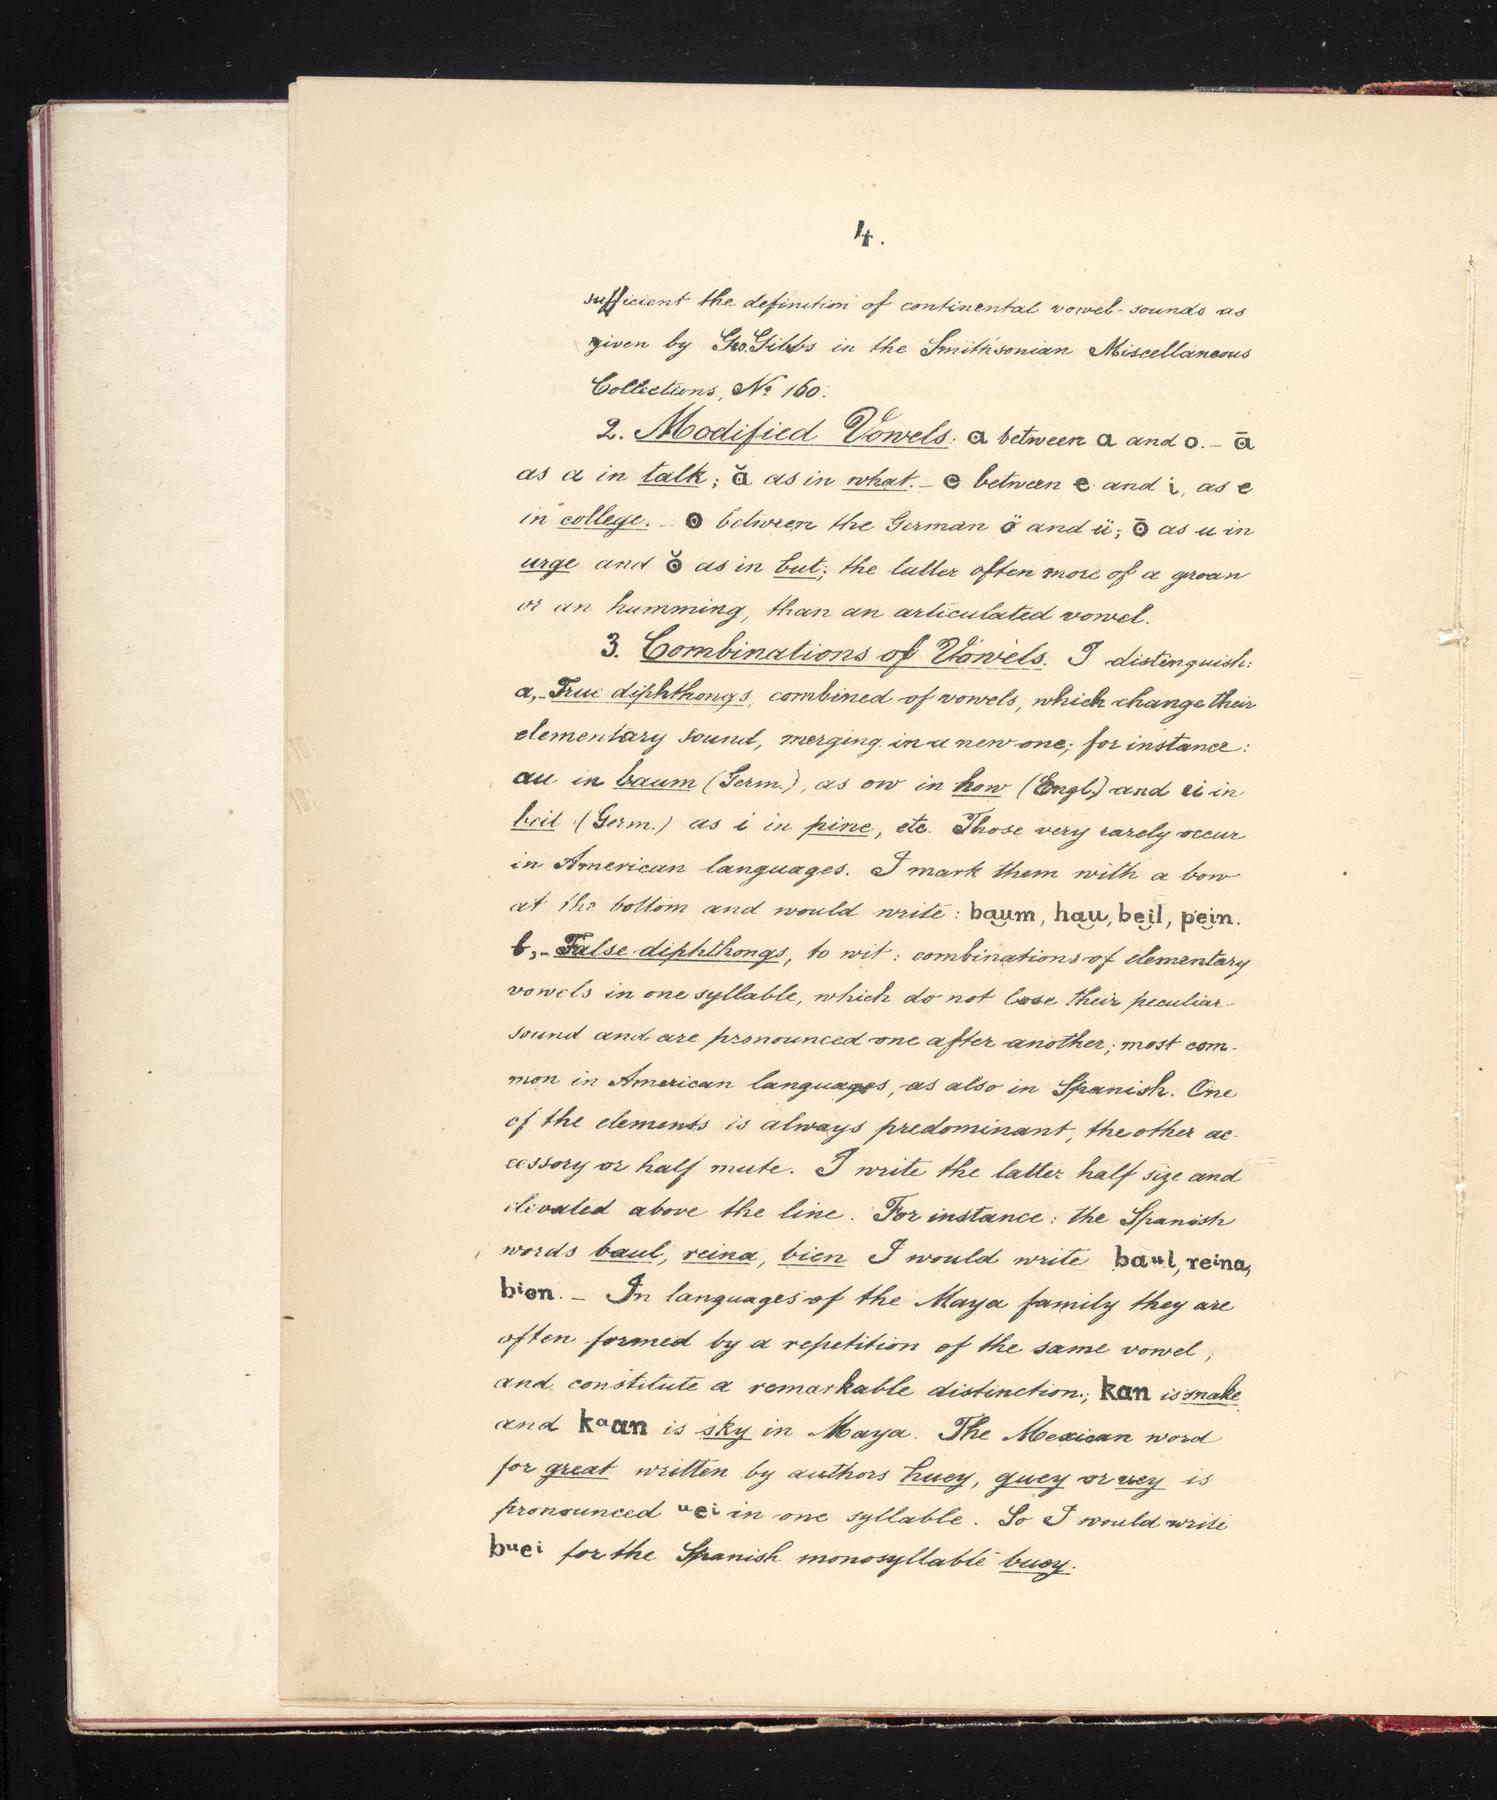 4.
sufficient the definition of continental vowel-sounds as
given by Geo. Gibbs in the Smithsonian Miscellaneous
Collections, Nº 160.
2. Modified Vowels: a between a and o. – ā
as a in talk; ă as in what. – e between e and i, as e
in college. – o between the German ö and ü; ō as u in
urge and ŏ as in but; the latter often more of a groan
or an humming, than an articulated vowel.
3. Combinations of Vowels. I distinguish:
a,- True diphthongs, combined of vowels, which change their
elementary sound, merging in a new one; for instance:
au in baum (Germ.), as ow in how (Engl.) and ei in
beil (Germ.) as i in pine, etc. Those very rarely occur
in American languages. I mark them with a bow
at the bottom and would write: ba͜um, ha͜u, be͜il, pe͜in.
b,- False diphthongs, to wit: combinations of elementary
vowels in one syllable, which do not lose their peculiar
sound and are pronounced one after another; most com-
mon in American languages, as also in Spanish. One
of the elements is always predominant, the other ac-
cessory or half mute. I write the latter half size and
elevated above the line. For instance: the Spanish
words baul, reina, bien I would write baᵘl, reⁱna,
bⁱen. – In languages of the Maya family they are
often formed by a repetition of the same vowel,
and constitute a remarkable distinction; kan is snake
and kᵃan is sky in Maya. The Mexican word
for great written by authors huey, guey or uey is
pronounced ᵘeⁱ in one syllable. So I would write
bᵘeⁱ for the Spanish monosyllable buey.